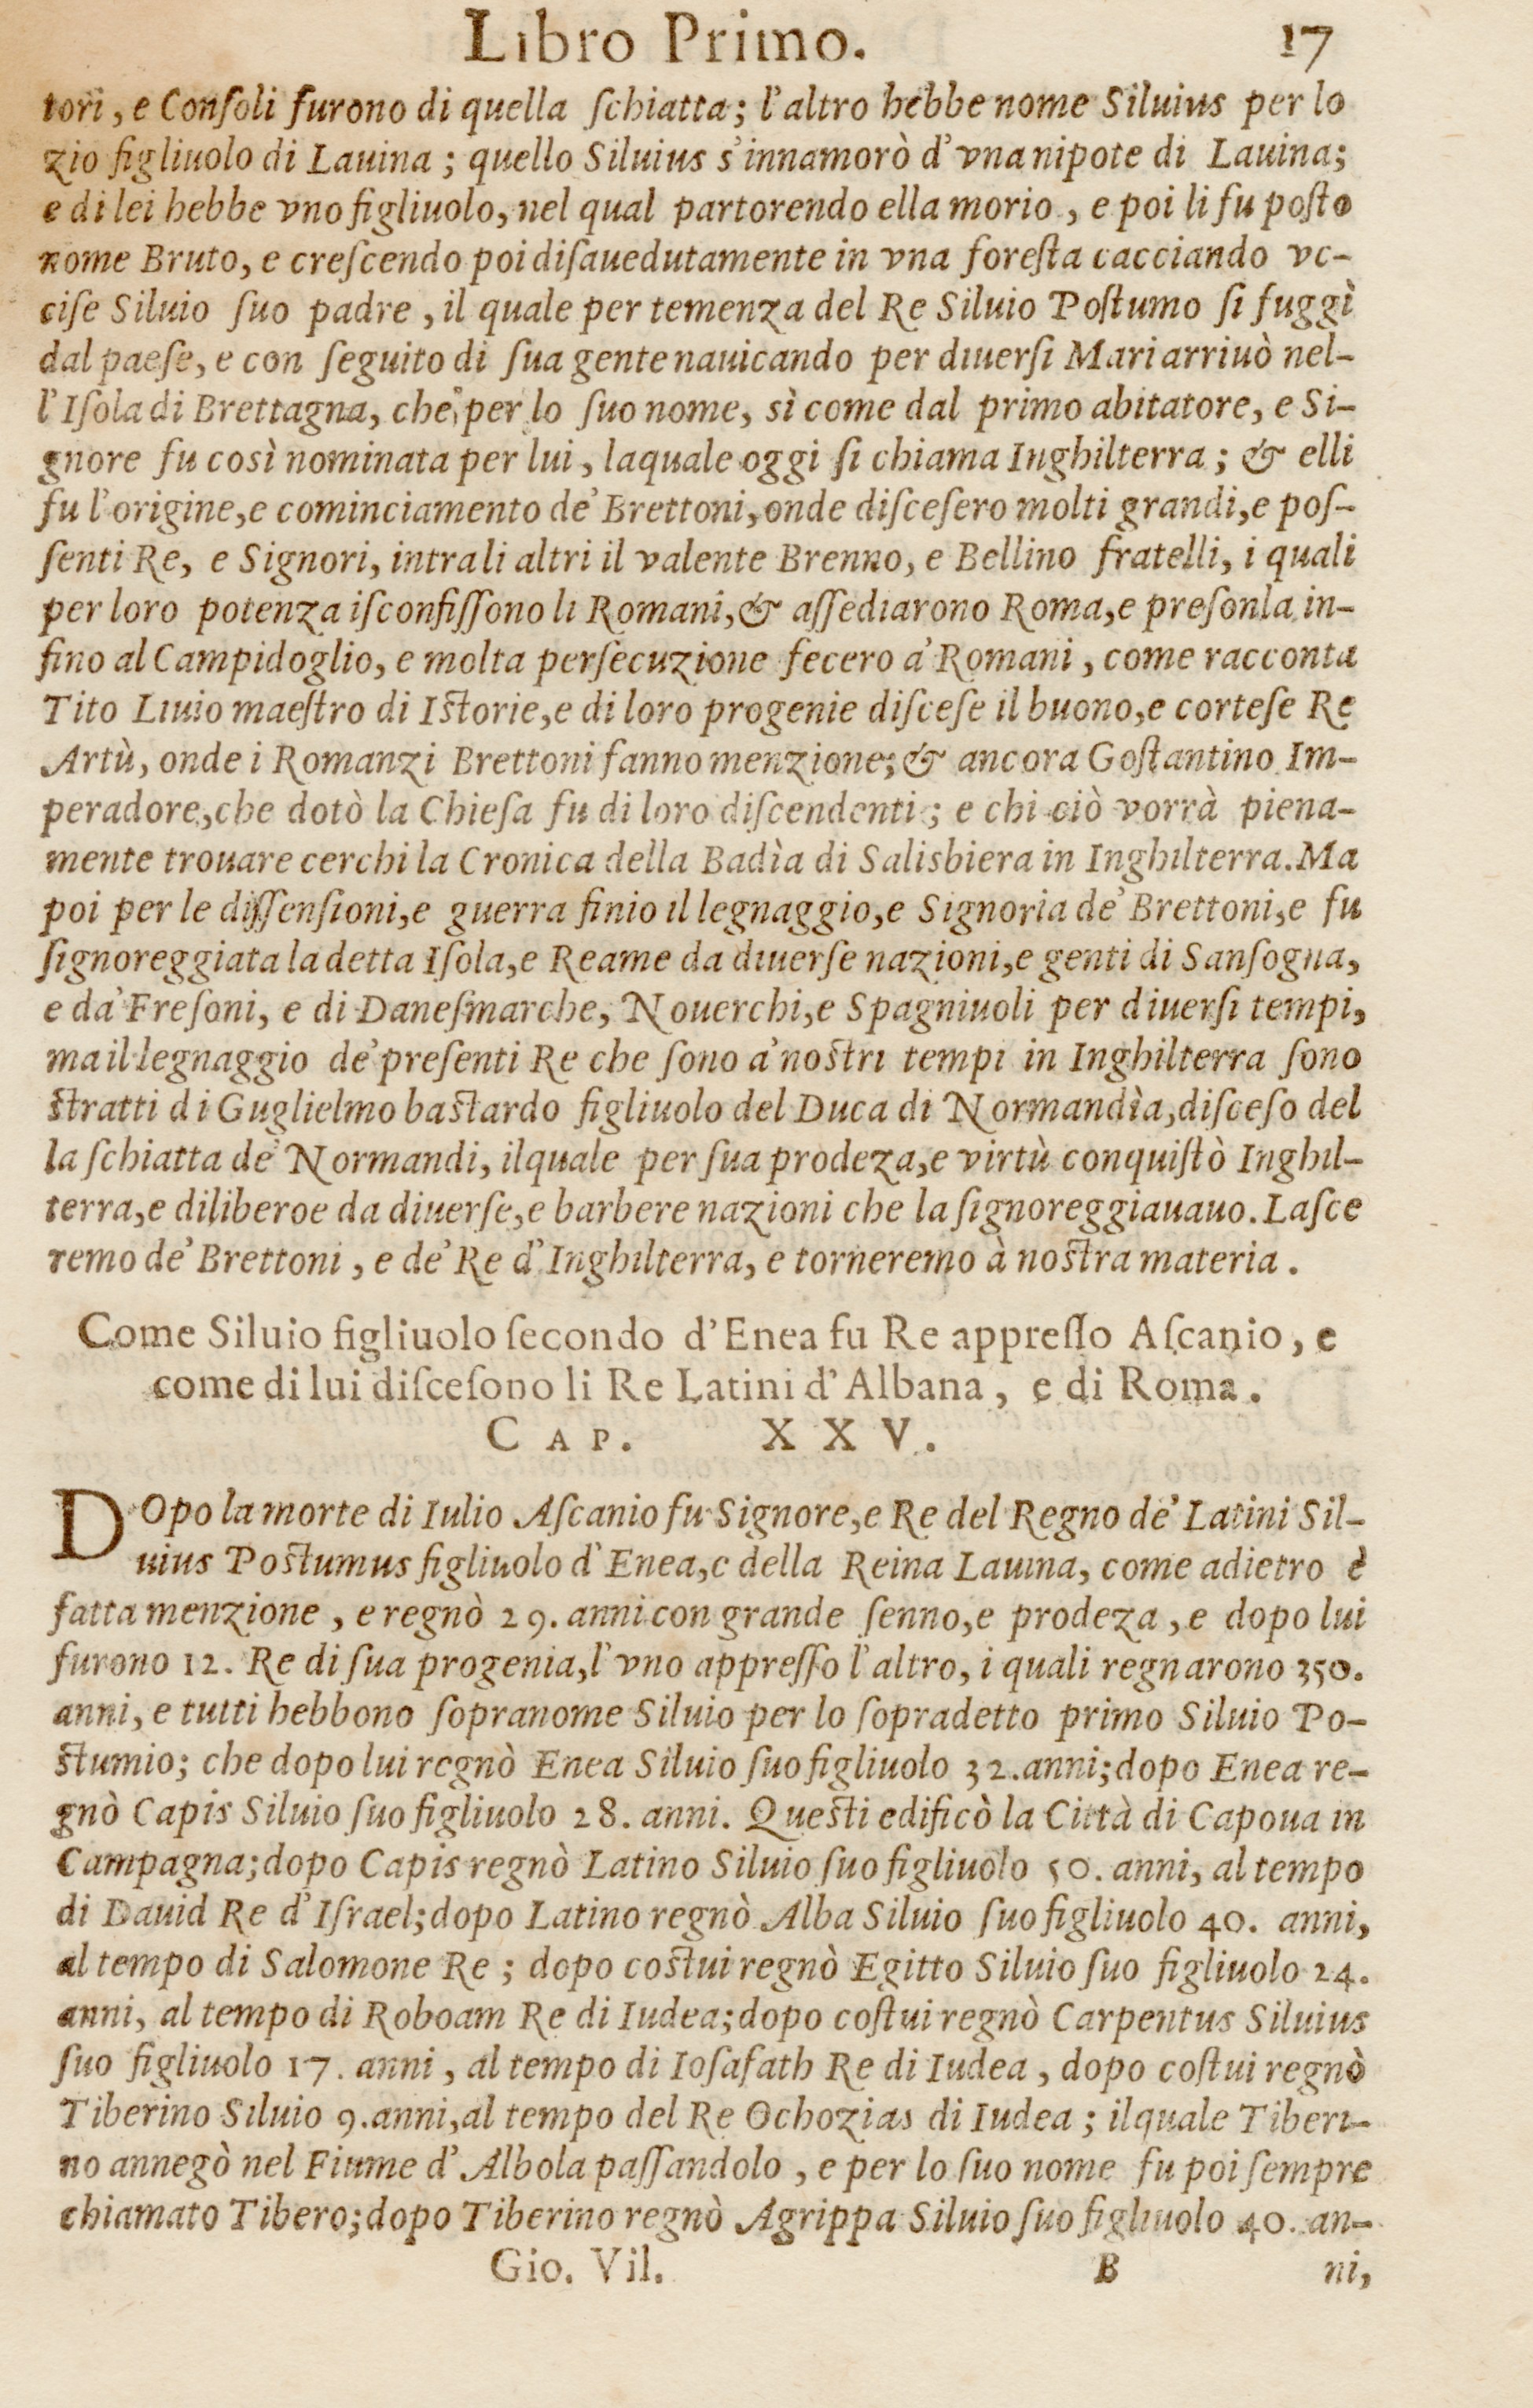 Libro Primo. 17
tori, e Conſoli furono di quella ſchiatta; l'altro hebbe nome Siluius per lo
zio figliuolo di Lauina; quello Siluius s'innamorò d'vna nipote di Lauina;
e di lei hebbe vno figliuolo, nel qual partorendo ella morio, e poi li fu poſto
nome Bruto, e creſcendo poi diſauedutamente in vna foreſta cacciando vc-
ciſe Siluio ſuo padre, il quale per temenza del Re Siluio Poſtumo ſi fuggì
dal paeſe, e con ſeguito di ſua gente nauicando per diuerſi Mari arriuò nel-
l'Iſola di Brettagna, che per lo ſuo nome, sì come dal primo abitatore, e Si-
gnore fu così nominata per lui, laquale oggi ſi chiama Inghilterra; & elli
fu l'origine, e cominciamento de' Brettoni, onde diſceſero molti grandi, e poſ-
ſenti Re, e Signori, intra li altri il valente Brenno, e Bellino fratelli, i quali
per loro potenza iſconfiſſono li Romani, & aſſediarono Roma, e preſonla in-
fino al Campidoglio, e molta perſecuzione fecero a' Romani, come racconta
Tito Liuio maeſtro di Iſtorie, e di loro progenie diſceſe il buono, e corteſe Re
Artù, onde i Romanzi Brettoni fanno menzione; & ancora Goſtantino Im-
peradore, che dotò la Chieſa fu di loro diſcendenti; e chi ciò vorrà piena-
mente trouare cerchi la Cronica della Badìa di Salisbiera in Inghilterra. Ma
poi per le diſſenſioni, e guerra finio il legnaggio, e Signoria de' Brettoni, e fu
ſignoreggiata la detta Iſola, e Reame da diuerſe nazioni, e genti di Sanſogna,
e da' Freſoni, e di Daneſmarche, Nouerchi, e Spagniuoli per diuerſi tempi,
ma il legnaggio de' preſenti Re che ſono a' noſtri tempi in Inghilterra ſono
ſtratti di Guglielmo baſtardo figliuolo del Duca di Normandìa, diſceſo del
la ſchiatta de' Normandi, ilquale per ſua prodeza, e virtù conquiſtò Inghil-
terra, e diliberoe da diuerſe, e barbere nazioni che la ſignoreggiauauo. Laſce
remo de' Brettoni, e de' Re d'Inghilterra, e torneremo à noſtra materia.
Come Siluio figliuolo ſecondo d'Enea fu Re appreſſo Aſcanio, e
come di lui diſceſono li Re Latini d'Albana, e di Roma.
CAP. XXV.
DOpo la morte di Iulio Aſcanio fu Signore, e Re del Regno de' Latini Sil-
uius Poſtumus figliuolo d'Enea, e della Reina Lauina, come adietro è
fatta menzione, e regnò 29. anni con grande ſenno, e prodeza, e dopo lui
furono 12. Re di ſua progenia, l'vno appreſſo l'altro, i quali regnarono 350.
anni, e tutti hebbono ſopranome Siluio per lo ſopradetto primo Siluio Po-
ſtumio; che dopo lui regnò Enea Siluio ſuo figliuolo 32. anni; dopo Enea re-
gnò Capis Siluio ſuo figliuolo 28. anni. Queſti edificò la Città di Capoua in
Campagna; dopo Capis regnò Latino Siluio ſuo figliuolo 50. anni, al tempo
di Dauid Re d'Iſrael; dopo Latino regnò Alba Siluio ſuo figliuolo 40. anni,
al tempo di Salomone Re; dopo coſtui regnò Egitto Siluio ſuo figliuolo 24.
anni, al tempo di Roboam Re di Iudea; dopo coſtui regnò Carpentus Siluius
ſuo figliuolo 17. anni, al tempo di Ioſafath Re di Iudea, dopo coſtui regnò
Tiberino Siluio 9. anni, al tempo del Re Ochozias di Iudea; ilquale Tiberi-
no annegò nel Fiume d'Albola paſſandolo, e per lo ſuo nome fu poi ſempre
chiamato Tibero; dopo Tiberino regnò Agrippa Siluio ſuo figliuolo 40. an-
Gio. Vil. B ni,